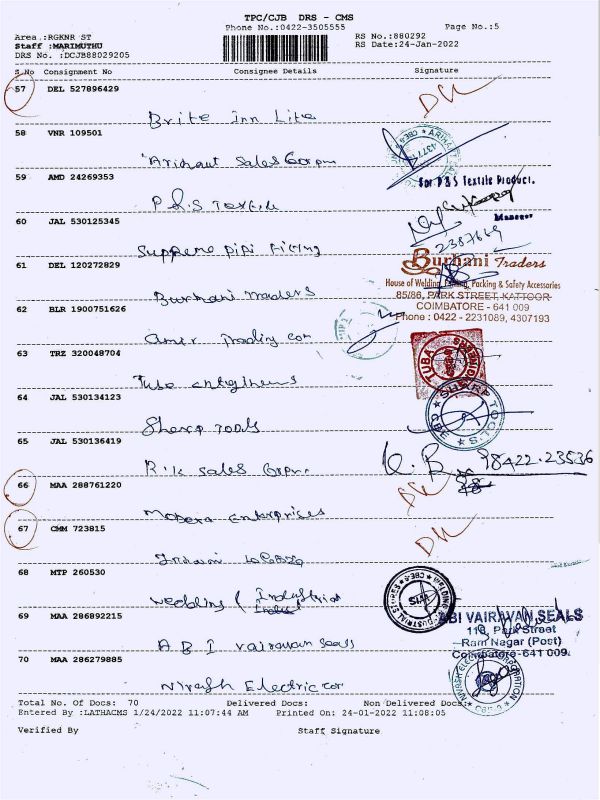 TPC/CJB DRS - CMS
Phone No.:0422-3505555
Page No.:5
Area :RGKNR ST
RS No.:880292
Staff :MARIMUTHU
RS Date:24-Jan-2022
DRS No. :DCJB88029205
S.No Consignment No Consignee Details Signature
57 DEL 527896429
Brite Inn Lite
58 VNR 109501
Arihant Sales Corpn
59 AMD 24269353
For P & S Textile Product.
P & S Textile
Manager
60 JAL 530125345
2387669
Supreme pipi Fitting
Burhani Traders
61 DEL 120272829
House of Welding, Packing & Safety Accessories
85/86, PARK STREET, KATTOOR
Burhani Traders
COIMBATORE - 641 009
62 BLR 1900751626
Phone : 0422 - 2231089, 4307193
Amer Trading com
63 TRZ 320048704
TUBA ENGINEERS
Tuba engineers
64 JAL 530134123
SHARP TOOLS CBE
Sharp Tools
65 JAL 530136419
R.K Sales Corpn
98422-23536
66 MAA 288761220
Modern enterprises
67 CMM 723815
68 MTP 260530
Welding Industrial
WELDING INDUSTRIAL STORES CBE-9
69 MAA 286892215
ABI VAIRAVAN SEALS
118, Park Street
Ram Nagar (Post)
Coimbatore-641 009.
A B I Vairavan Seals
70 MAA 286279885
Nivesh Electric cor
NIVESH ELECTRIC CORPORATION CBE-9
Total No. Of Docs: 70 Delivered Docs: Non Delivered Docs:
Entered By :LATHACMS 1/24/2022 11:07:44 AM Printed On: 24-01-2022 11:08:05
Verified By Staff Signature